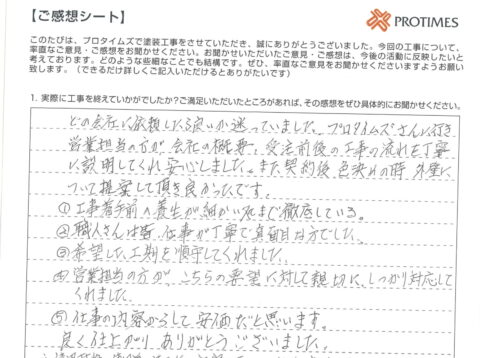 【ご感想シート】
PROTIMES
このたびは、プロタイムズで塗装工事をさせていただき、誠にありがとうございました。今回の工事について、
率直なご意見・ご感想をお聞かせください。お聞かせいただいたご意見・ご感想は、今後の活動に反映したいと
考えております。どのような些細なことでも結構です。ぜひ、率直なご意見をお聞かせくださいますようお願い
致します。（できるだけ詳しくご記入いただけるとありがたいです）
1. 実際に工事を終えていかがでしたか?ご満足いただいたところがあれば、その感想をぜひ具体的にお聞かせください。
どの会社に依頼したら良いか迷っていました。プロタイムズさんに付き
営業担当の方が会社の概要、受注前後の工事の流れを丁寧
に説明してくれ安心しました。また契約後 色決めの時 外壁に
ついて提案して頂き良かったです。
① 工事着手前の養生が細かい所まで徹底している。
② 職人さんは皆、仕事が丁寧で真面目な方でした。
③ 希望した工期を順守してくれました。
④ 営業担当の方が、こちらの要望に対して親切に、しっかり対応して
くれました。
⑤ 仕事の内容からして安価だと思います。
良く仕上がり ありがとうございました。